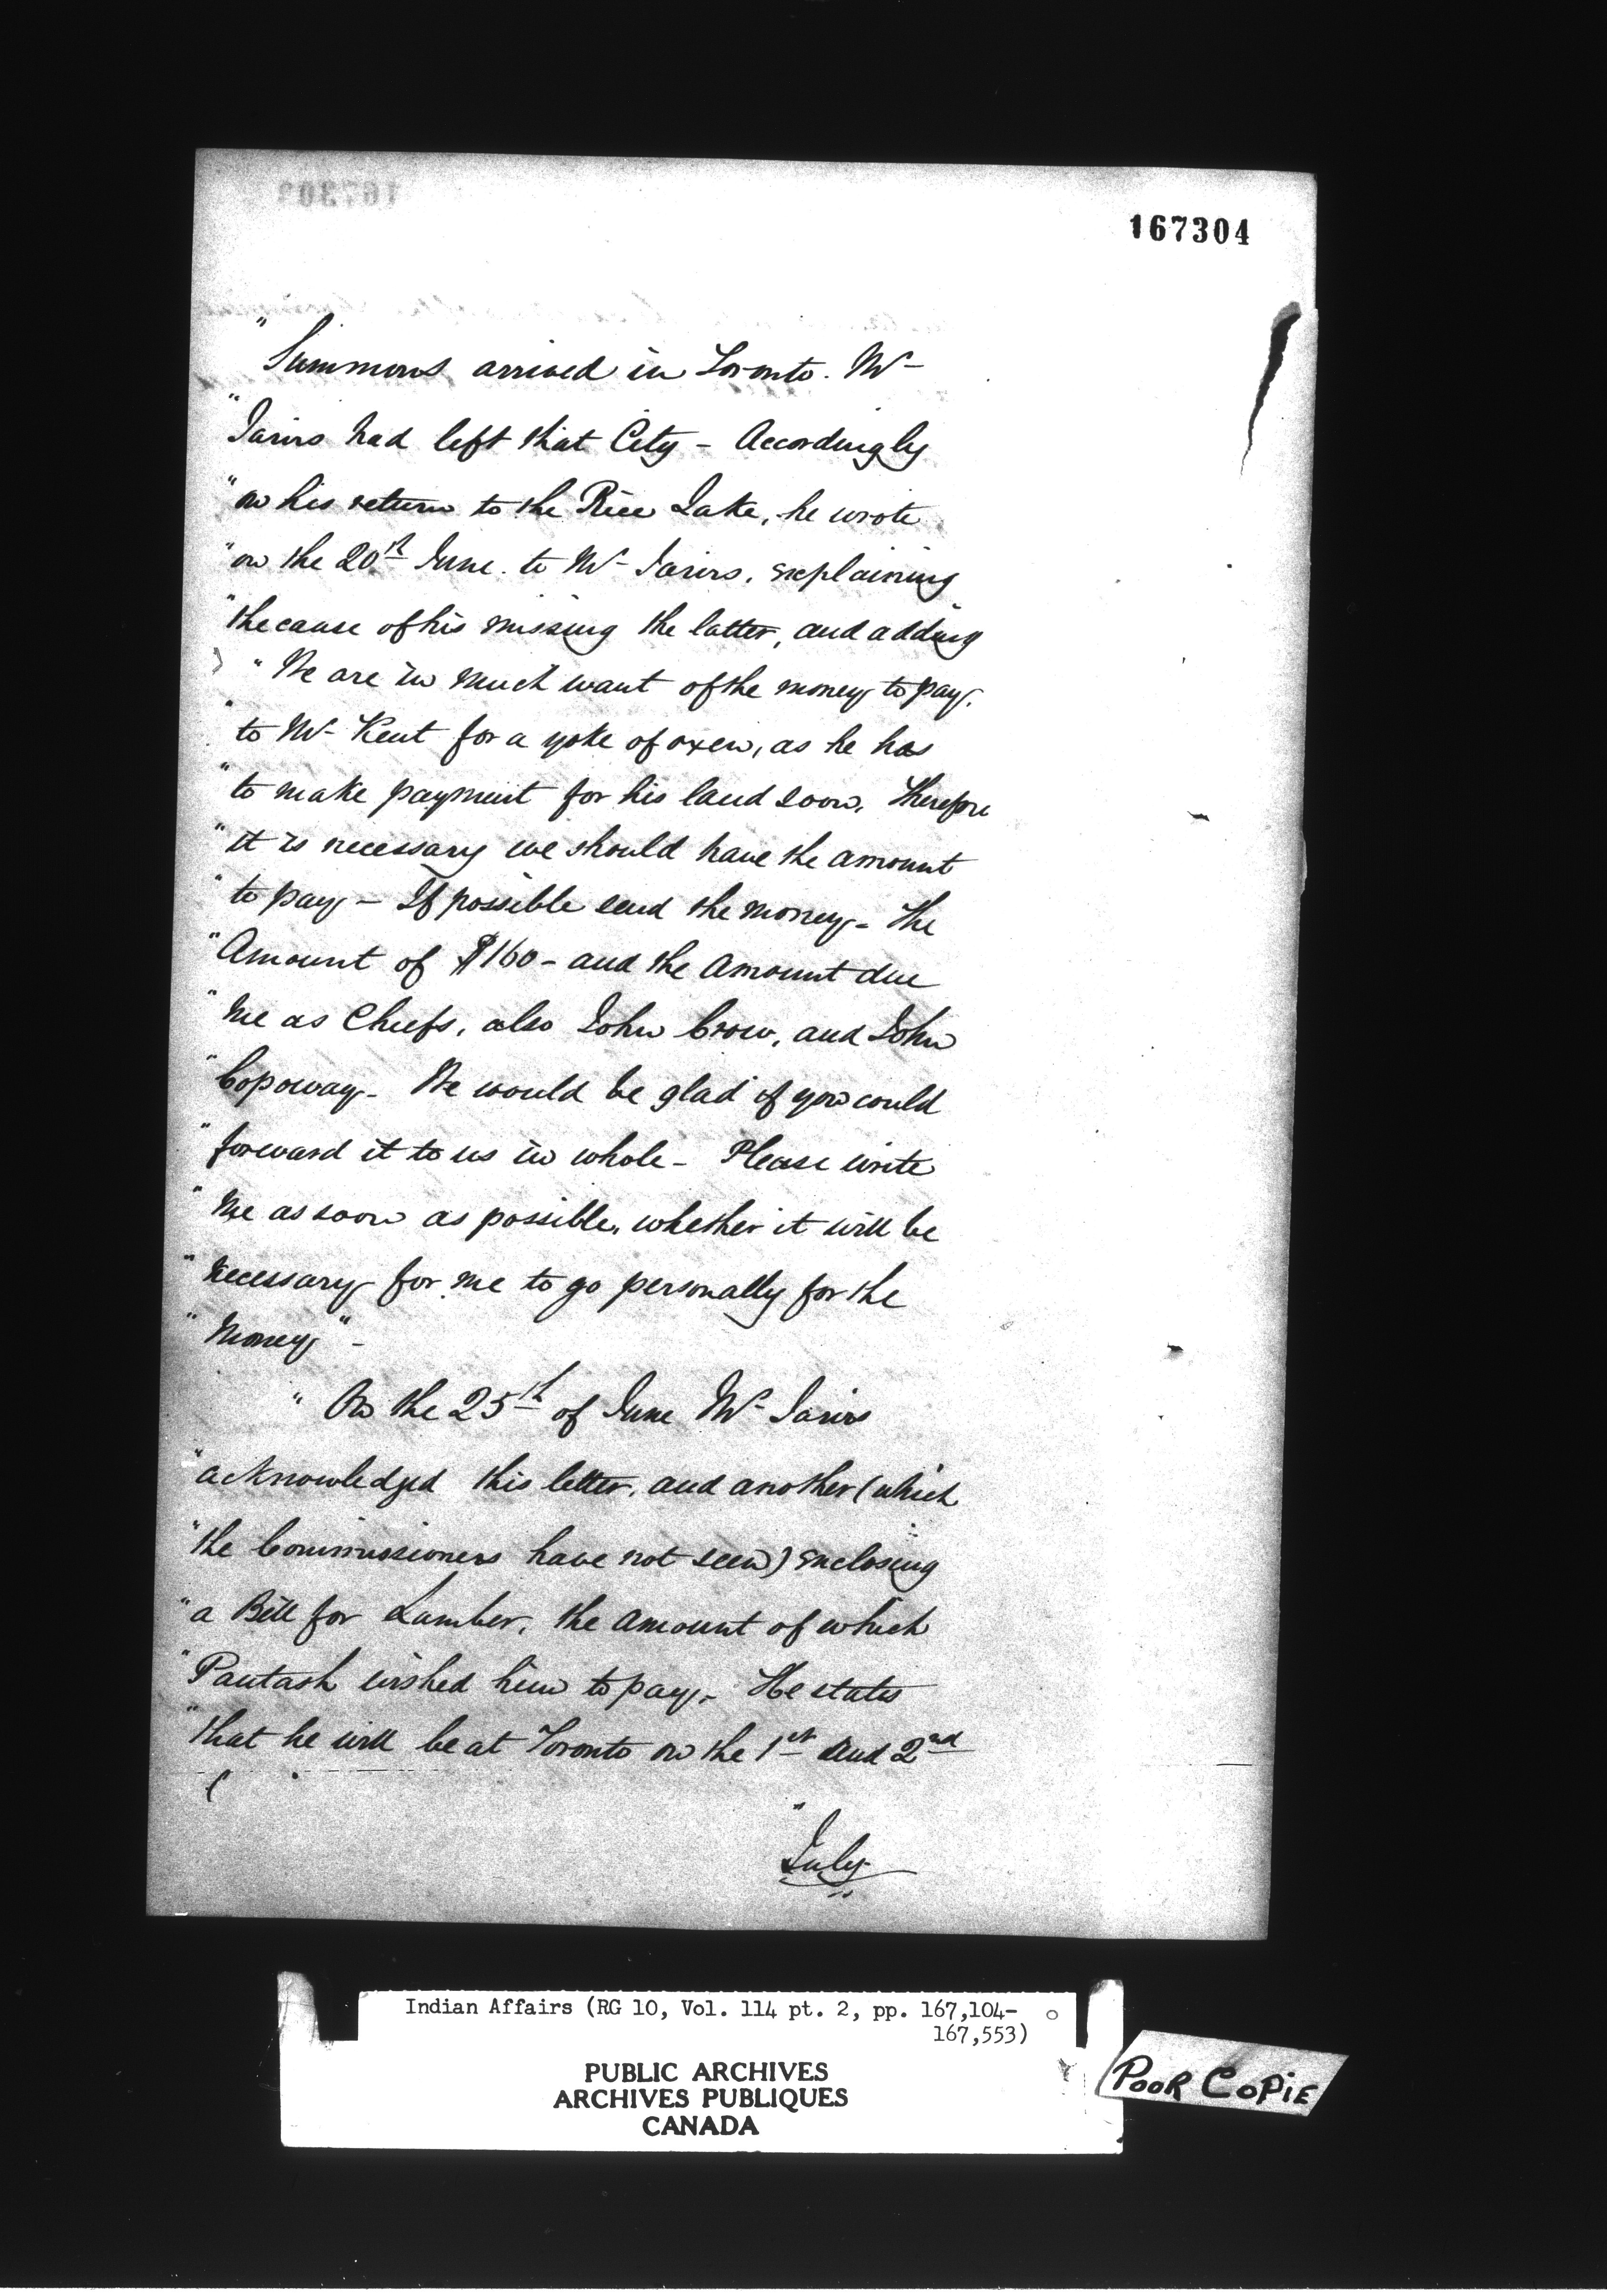 167304
" Summons arrived in Toronto. Mr
" Jarvis had left that City – Accordingly
" on his return to the Rice Lake, he wrote
" on the 20th June. to Mr Jarvis, explaining
" the cause of his missing the latter, and adding
" We are in much want of the money to pay.
" to Mr Kent for a yoke of oxen, as he has
" to make payment for his land soon, Therefore
" it is necessary we should have the amount
" to pay – If possible send the money – The
" Amount of $160 – and the Amount due
" Me as Chiefs, also John Crow, and John
" Copoway – We would be glad if you could
" forward it to us in whole – Please write
" Me as soon as possible, whether it will be
" Necessary for me to go personally for the
" Money " –
" On the 25th of June Mr Jarvis
" acknowledged this letter, and another (which
" the Commissioners have not seen) enclosing
" a Bill for Lumber, the amount of which
" Pautash wished him to pay – He states
" that he will be at Toronto on the 1st and 2nd
" July
Indian Affairs (RG 10, Vol. 114 pt. 2, pp. 167,104-
167,553)
PUBLIC ARCHIVES
ARCHIVES PUBLIQUES
CANADA
POOR COPIE